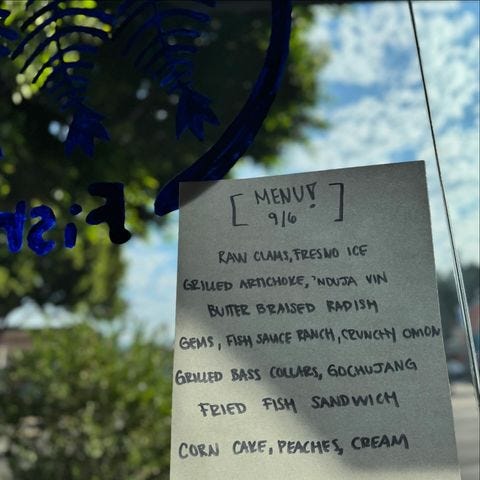 Fish
[MENU!]
9/6
RAW CLAMS, FRESNO ICE
GRILLED ARTICHOKE, 'NDUJA VIN
BUTTER BRAISED RADISH
GEMS, FISH SAUCE RANCH, CRUNCHY ONION
GRILLED BASS COLLARS, GOCHUJANG
FRIED FISH SANDWICH
CORN CAKE, PEACHES, CREAM